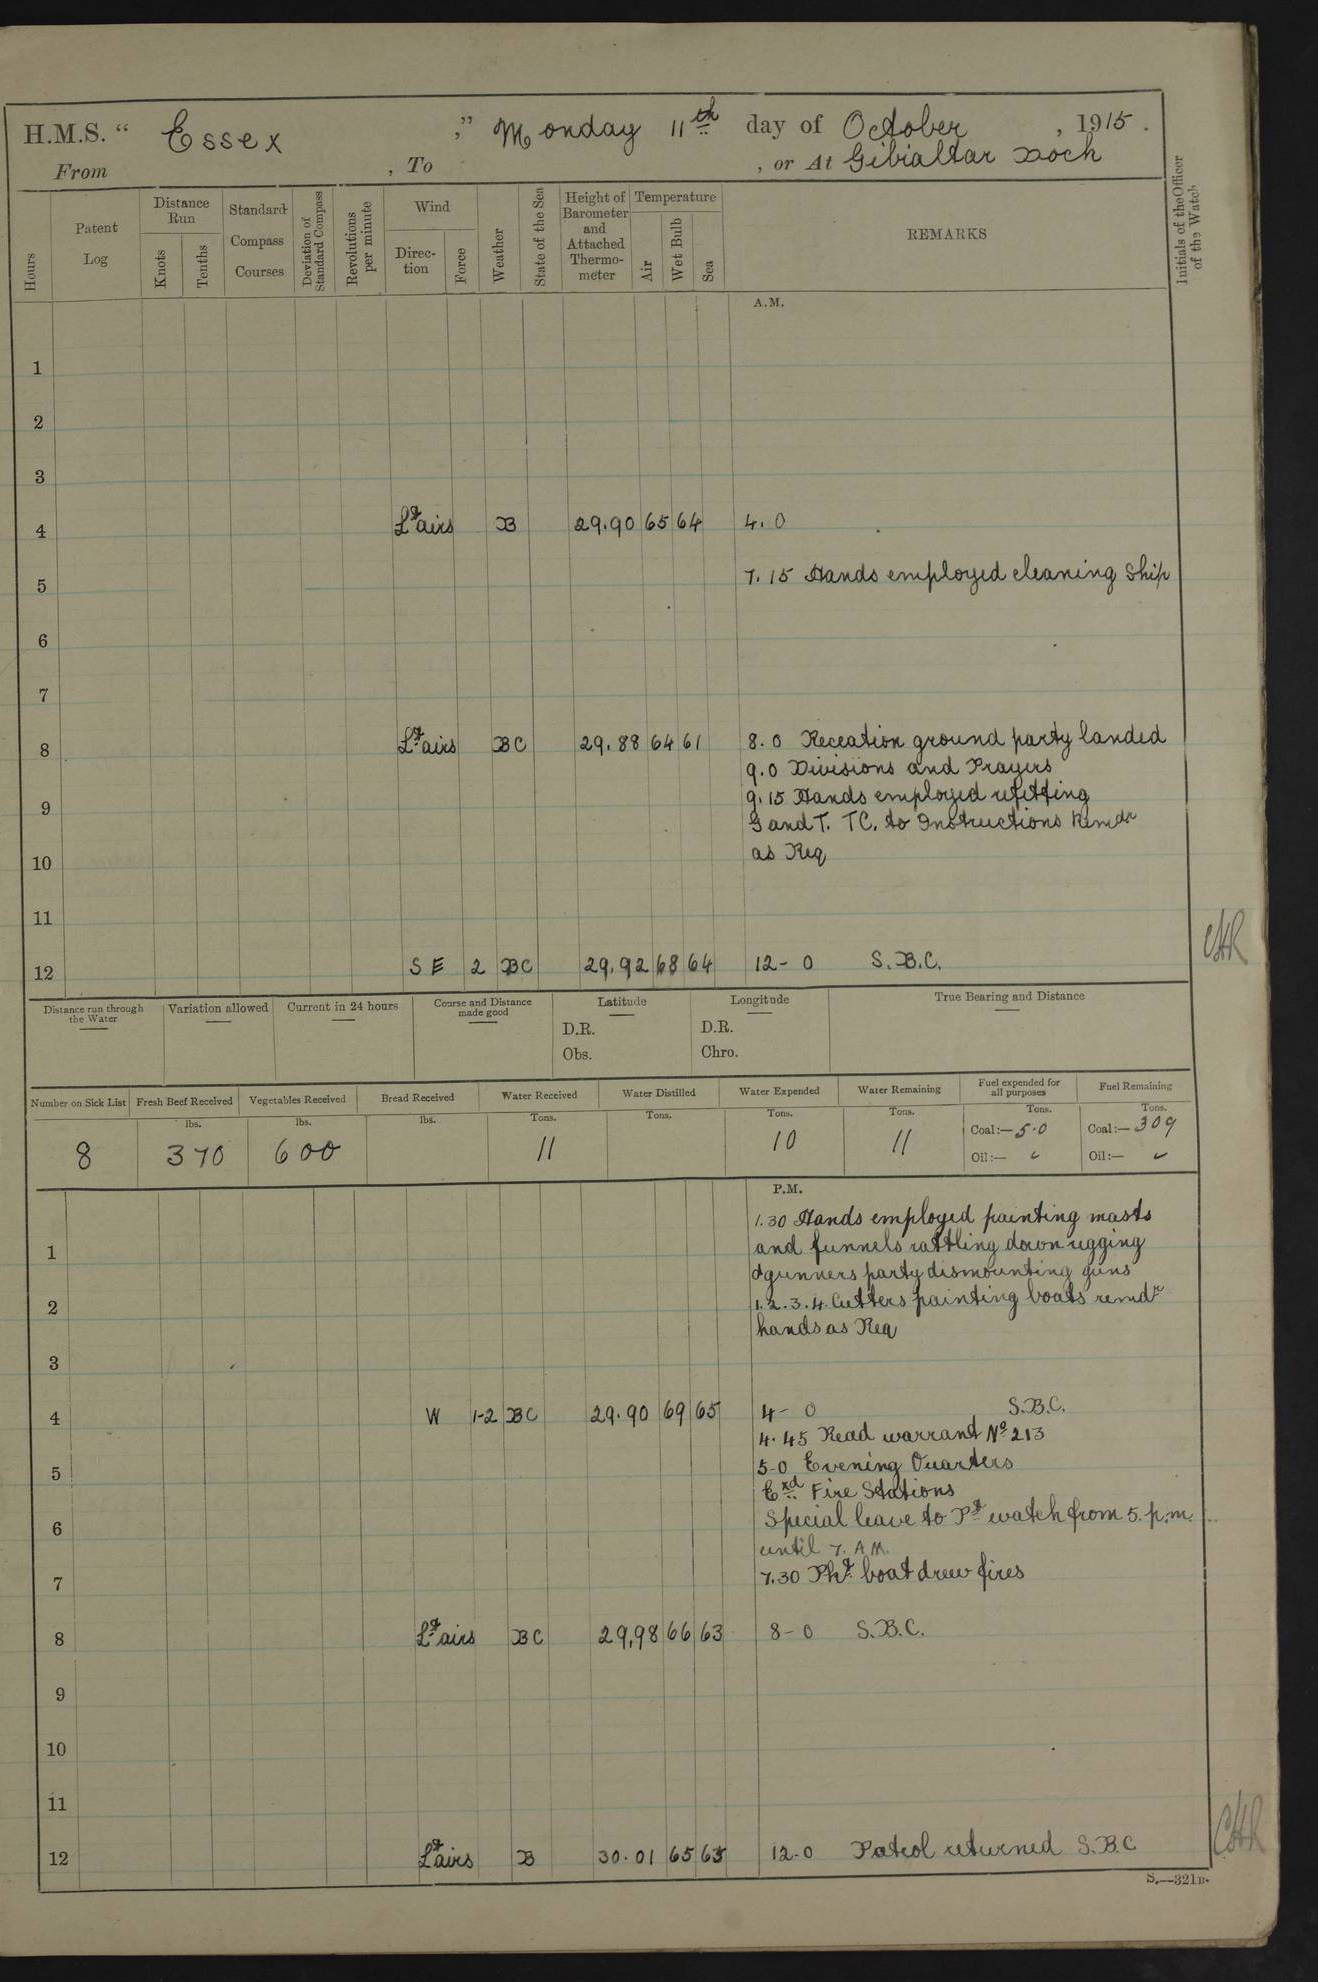 H.M.S. “ Essex ,” Monday 11th day of October , 1915 .
From , To , or At Gibraltar Dock
Hours
Patent Log
Distance Run
Knots
Tenths
Standard Compass Courses
Deviation of Standard Compass
Revolutions per minute
Wind
Direc-tion
Force
Weather
State of the Sea
Height of Barometer and Attached Thermo-meter
Temperature
Air
Wet Bulb
Sea
REMARKS
Initials of the Officer of the Watch
A.M.
1
2
3
4 Lt airs B 29.90 65 64 4.0
7.15 Hands employed cleaning Ship
5
6
7
8 Lt airs BC 29.88 64 61 8.0 Receation ground party landed
9.0 Divisions and Prayers
9.15 Hands employed refitting
9
G and T. TC. to Instructions Remdr
as Req
10
11
12 SE 2 BC 29.92 68 64 12-0 S.B.C.
Distance run through the Water
Variation allowed
Current in 24 hours
Course and Distance made good
Latitude
D.R.
Obs.
Longitude
D.R.
Chro.
True Bearing and Distance
Number on Sick List
Fresh Beef Received
Vegetables Received
Bread Received
Water Received
Water Distilled
Water Expended
Water Remaining
Fuel expended for all purposes
Fuel Remaining
lbs. lbs. lbs. Tons. Tons. Tons. Tons. Tons. Tons.
8 370 600 11 10 11 Coal:— 5.0 Coal:— 309
Oil:— Oil:—
P.M.
1.30 Hands employed painting masts
1 and funnels rattling down rigging
& gunners party dismounting guns
2 1.2.3.4. Cutters painting boats remdr
hands as Req
3
4 W 1-2 BC 29.90 69 65 4-0 S.B.C.
4.45 Read warrant No 213
5 5-0 Evening Quarters
Exd Fire Stations
6 Special leave to Pt watch from 5.p.m.
until 7.AM.
7 7.30 Pkt boat drew fires
8 Lt airs BC 29.98 66 63 8-0 S.B.C.
9
10
11
12 Lt airs B 30.01 65 63 12-0 Patrol returned S.B.C
S.—321B.